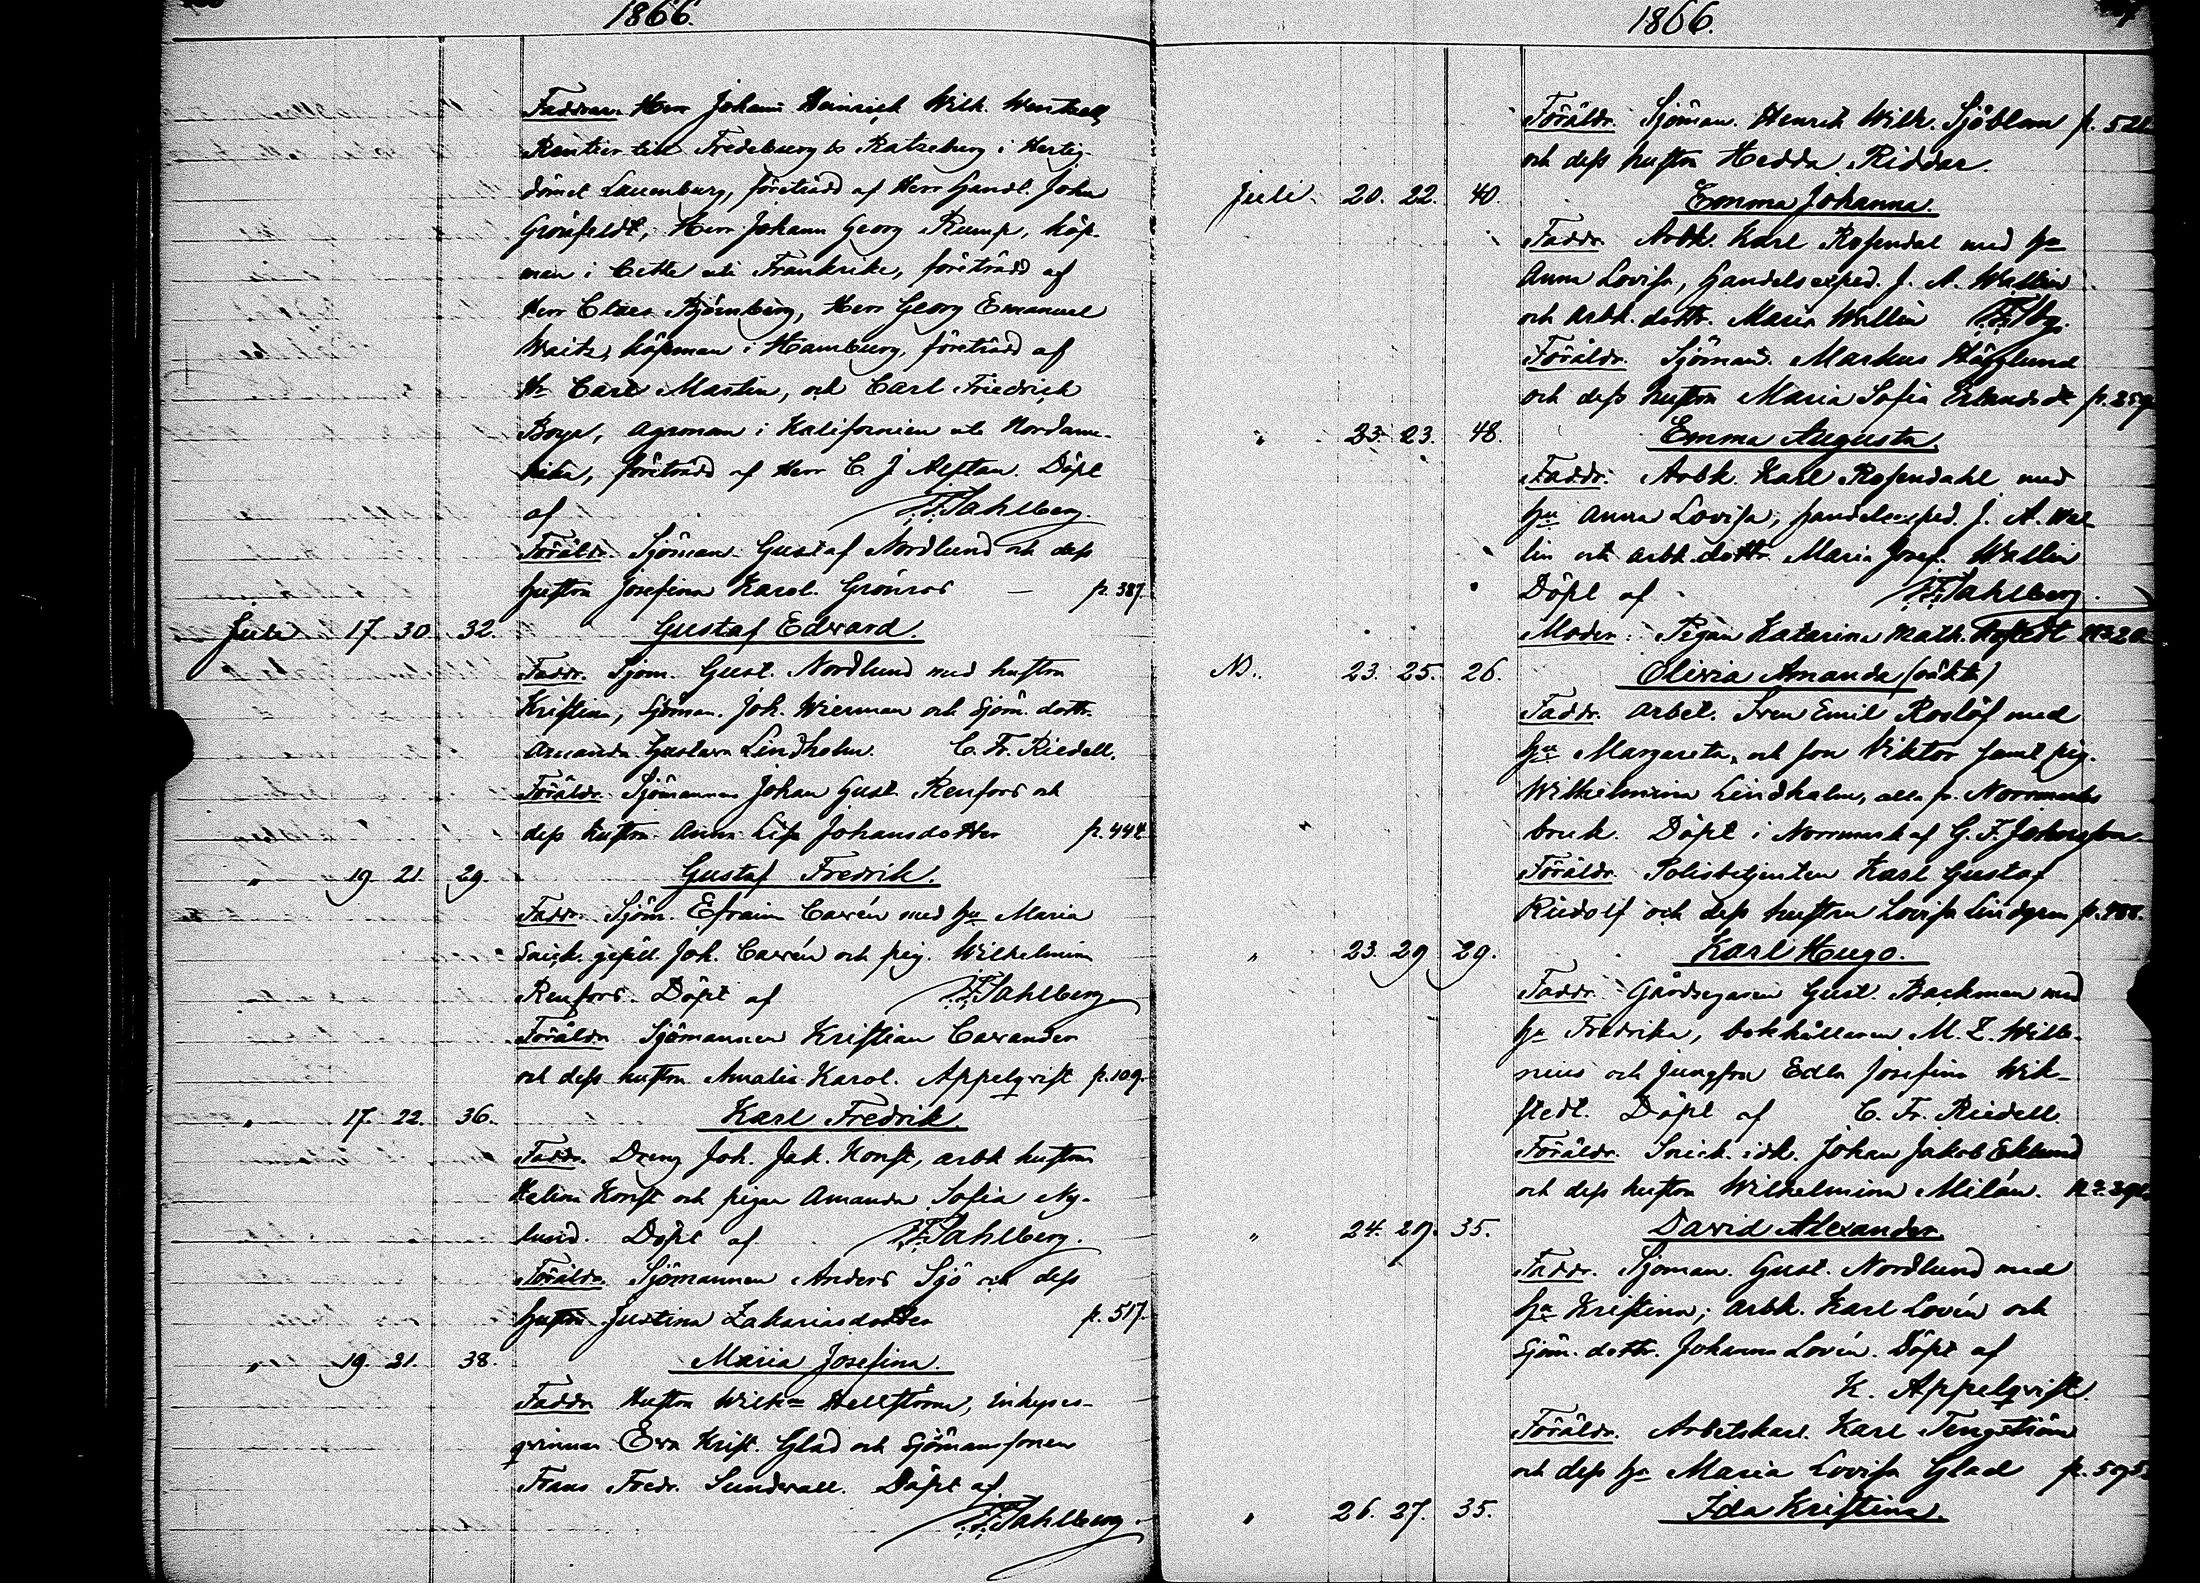 1866.
Faddrar Herr Johann Heinrich Wilh.
Rentier till Fredeburg Ratzeburg i Hertig-
dömet Lauenburg, företrädd af Herr Handl. John
Grönfeldt, Herr Johann Georg Rump, köp-
man i Cette uti Frankrike, företrädd af
Herr Claes Björnberg, Herr Georg Emanuel
Waitz, köpman i Hamburg, företrädd af
Hr Carl Martin, och Carl Friedrich
Boye, agronom i Kalifornien uti Nordame-
rika, företrädd af Herr C. J. Alftan. Döpt
af F. F. Sahlberg.
Föräldr. Sjöman Gustaf Nordlund och dess
hustru Josefina Karol. Grönros — p. 387.
Juli 17. 30. 32. Gustaf Edvard.
Faddr. Sjöm. Gust. Nordlund med hustru
Kristina, Sjöman. Joh. Wierman och Sjöm. dottr.
Amanda Gustava Lindholm. C. Fr. Riedell.
Föräldr. Sjömannen Johan Gust. Renfors och
dess hustru Anna Lisa Johansdotter p. 444.
" 19. 21. 29. Gustaf Fredrik.
Faddr. Sjöm. Efraim Cavén med hu Maria
Snick. gesäll. Joh. Cavén och pig. Wilhelmina
Renfors. Döpt af F. F. Sahlberg
Föräldr. Sjömannen Kristian Cavander
och dess hustru Amalia Karol. Appelqvist p. 109.
" 17. 22. 36. Karl Fredrik.
Faddr. Dreng Joh. Jak. Konst, arbk hustrun
Helina Konst och pigan Amanda Sofia Ny-
lund. Döpt af F. F. Sahlberg.
Föräldr. Sjömannen Anders Sjö och dess
hustru Justina Zakariasdotter p. 517.
" 19. 21. 38. Maria Josefina.
Faddr. Hustru Wilhna Hellström, inhyses-
qvinnan Eva Krist. Glad och Sjömanssonen
Frans Fredr. Sundvall. Döpt af
F. F. Sahlberg.
1866.
Föräldr. Sjöman. Henrik Wilh. Sjöblom p.
och dess hustru Hedda Riddar.
Juli. 20. 22. 40. Emma Johanna.
Faddr. Arbk. Karl Rosendal med hu
Anna Lovisa, Handelsexped. J. A. Wallin
och arbk. dottr. Maria Wallin F. F. Sbg.
Föräldr. Sjöman. Markus Högglund
och dess hustru Maria Sofia Erlandsdr
" 23. 23. 48. Emma Augusta.
Faddr. Arbk. Karl Rosendahl med
hu Anna Lovisa, handelsexped. J. A. Wal-
lin och arbk. dottr. Maria Josef. Wallin
Döpt af F. F. Sahlberg.
Moder: Pigan Katarina Math.
No. 23. 25. 26. Olivia Amanda (oäkta)
Faddr. arbet. Sven Emil Roslöf med
hu Margareta, och son Viktor samt pig.
Wilhelmina Lindholm, alla fr. Norrmarks
bruk. Döpt i Norrmark af G. F. Johnsson.
Föräldr. Polisbetjenten Karl Gustaf
Riedolf och dess hustru Lovisa Lindgren
" 23. 29. 29. Karl Hugo.
Faddr. Gårdsegaren Gust. Backman med
hu Fredrika, bokhållaren M. Z. Wille-
nius och Jungfru Edla Josefina Wik-
stedt. Döpt af C. Fr. Riedell.
Föräldr. Snick. idk. Johan Jakob Eklund
och dess hustru Wilhelmina Milén.
" 24. 29. 35. David Alexander.
Faddr. Sjöman. Gust. Nordlund med
hu Kristina; arbk. Karl Lovén och
Sjöm. dottr. Johanna Lovén. Döpt af
K. Appelqvist.
Föräldr. Arbetskarl. Karl Tengström
och dess hu Maria Lovisa Glad p. 595
" 26. 27. 35. Ida Kristina.